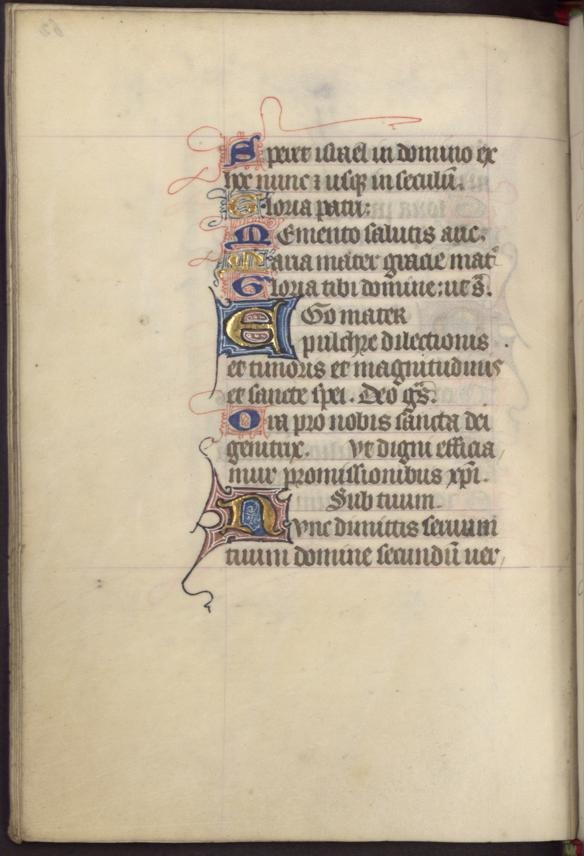 Speret israel in domino ex
hoc nunc ⁊ usqȝ in seculū.
Gloria patri:
Memento salutis auc.
Maria mater gracie mat̄
Gloria tibi domine: ut s̄.
EGo mater
pulchre dilectionis
et timoris et magnitudinis
et sancte spei. Deo gr̄s.
Ora pro nobis sancta dei
genitrix. Vt digni efficia
mur promissionibus xp̄i.
Sub tuum.
Nunc dimittis seruum
tuum domine secundū uer